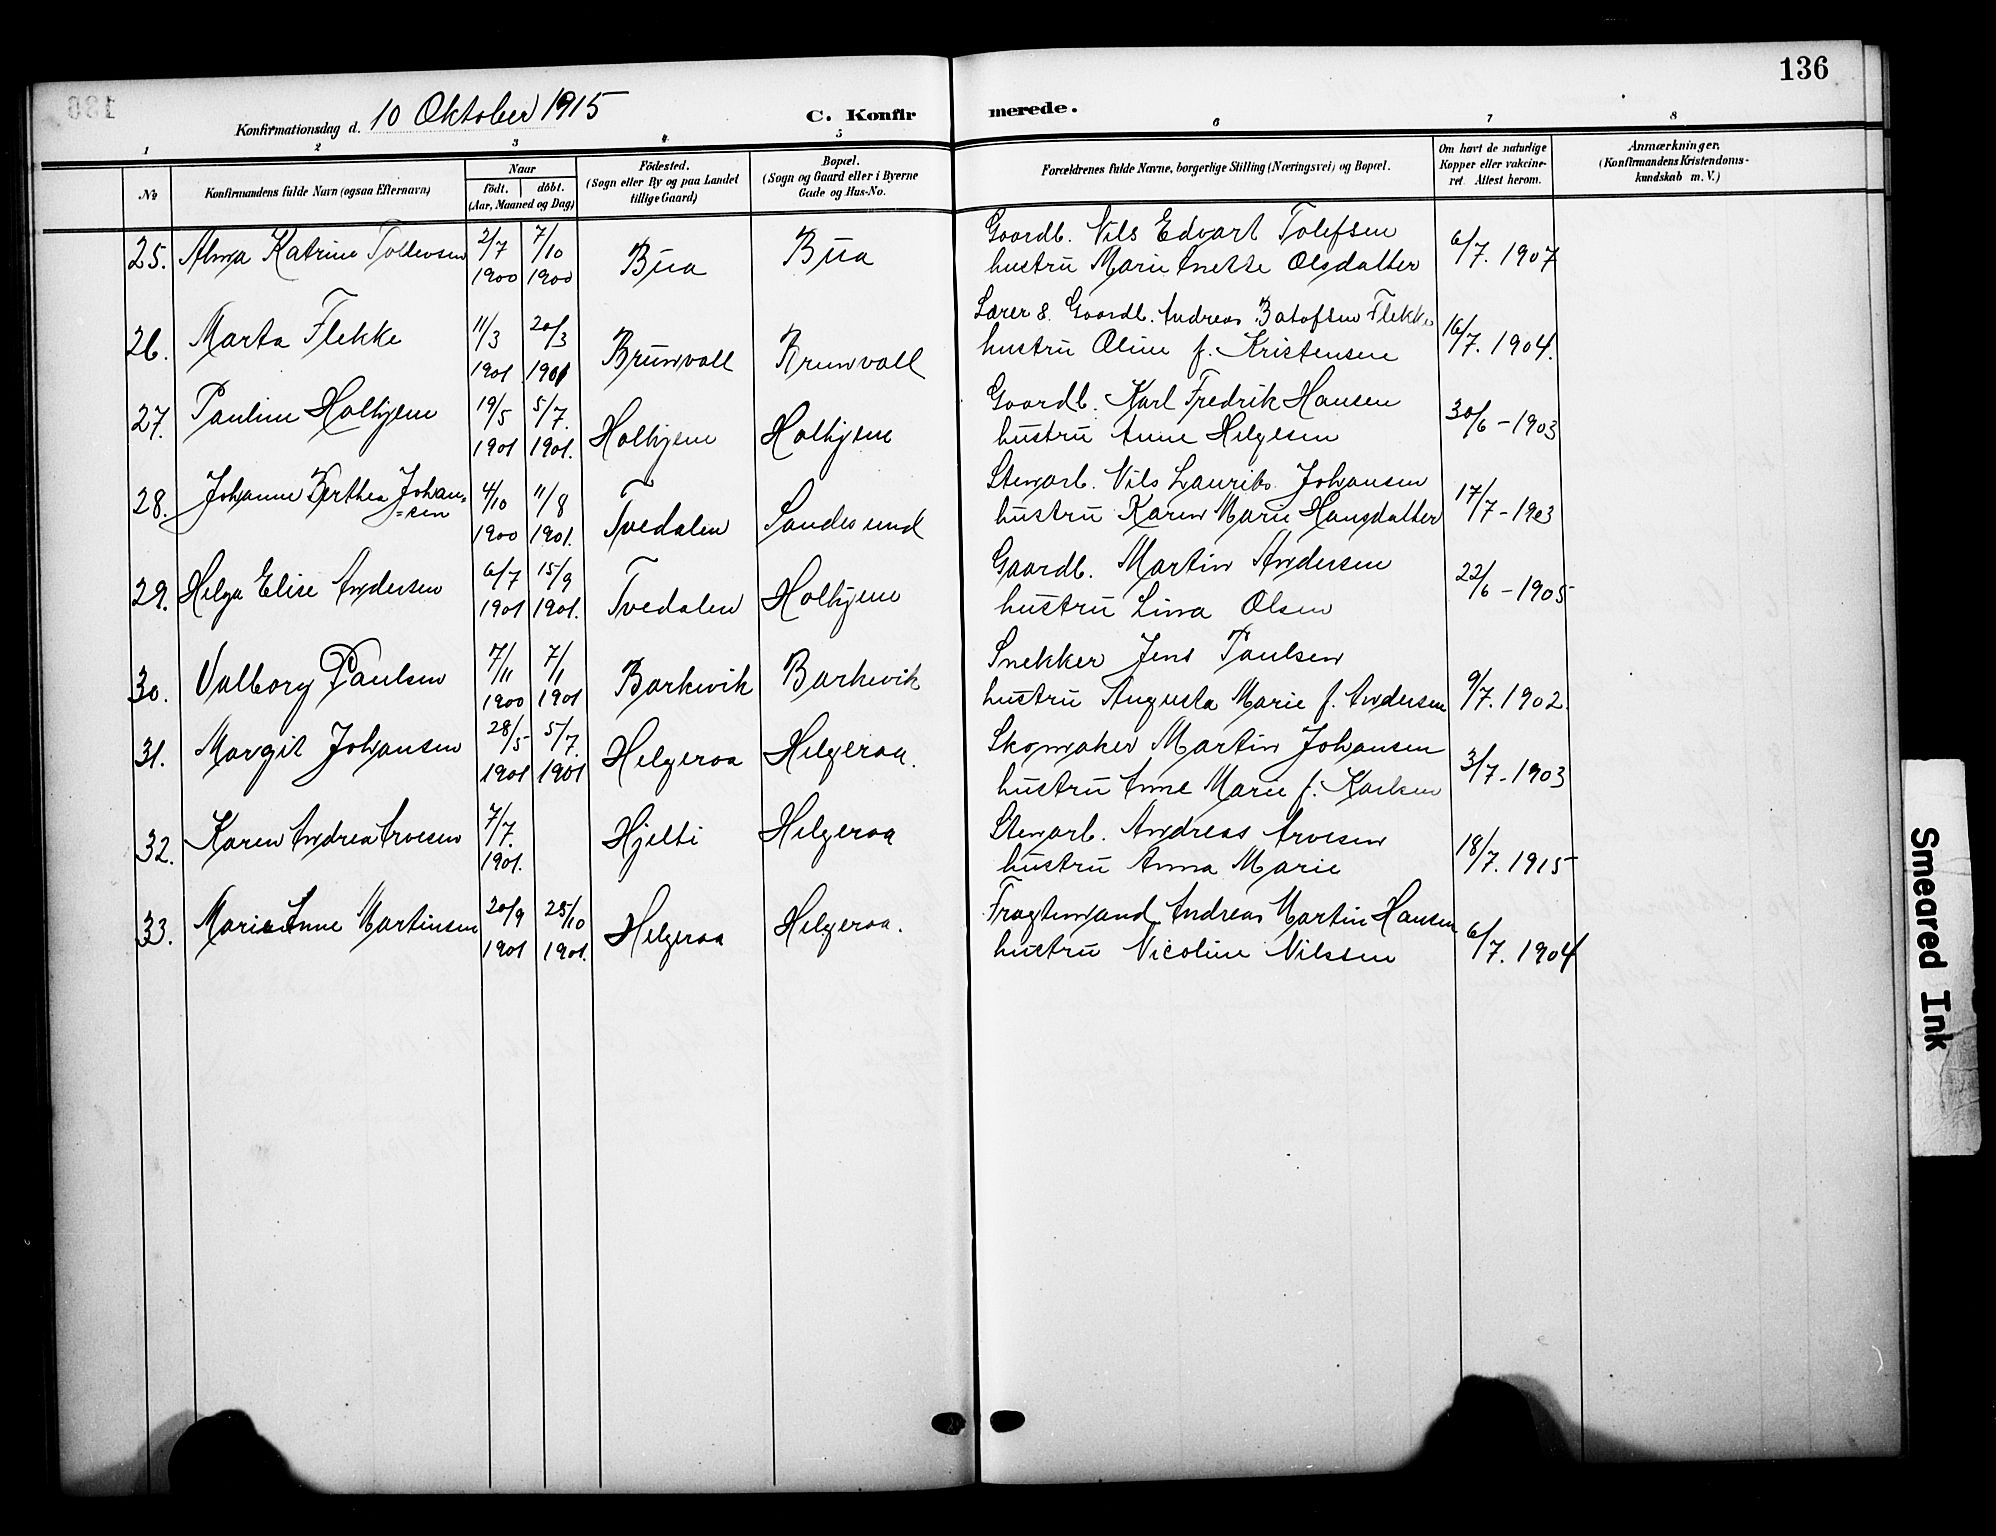 136
Konfirmationsdag d. 10 Oktober 1915
C. Konfirmerede.
1 2 3 4 5 6 7 8
No
Konfirmandens fulde Navn (ogsaa Efternavn)
Naar
födt. döbt.
(Aar, Maaned og Dag)
Födested.
(Sogn eller By og paa Landet
tillige Gaard)
Bopæl.
(Sogn og Gaard eller i Byerne
Gade og Hus-No.
Forældrenes fulde Navne, borgerlige Stilling (Næringsvei) og Bopæl.
Om havt de naturlige
Kopper eller vakcine-
ret. Attest herom.
Anmærkninger.
(Konfirmandens Kristendoms-
kundskab m. V.)
25. Alma Katrine Tollevsen 2/7 1900 7/10 1900 Bua Bua Gaardb. Nils Edvart Tolefsen
hustru Marie Anette Olsdatter 6/7. 1907
26. Marta Flekke 11/3 1901 20/3 1901 Brunvall Brunvall Lærer & Gaardb. Andreas Flekke
hustru Oline f. Kristensen 16/7. 1904.
27. Pauline Holhjem 19/5 1901 5/7. 1901. Holhjem Holhjem Gaardb. Karl Fredrik Hansen
hustru Anne Helgesen 30/6 - 1903
28. Johanne Berthea Johan=
=sen 4/10 1900 11/8 1901. Tvedalen Sandesund Stenarb. Nils Laurits Johansen
hustru Karen Marie Hansdatter 17/7 - 1903
29. Helga Elise Andersen 6/7 1901 15/9 1901. Tvedalen Holhjem Gaardb. Martin Andersen
hustru Lina Olsen 22/6 - 1905
30. Valborg Paulsen 7/11 1900 7/1 1901 Barkevik Barkevik Snekker Jens Paulsen
hustru Augusta Marie f. Andersen 9/7. 1902.
31. Margit Johansen 28/5 1901 5/7. 1901 Helgeroa Helgeroa. Skomaker Martin Johansen
hustru Anne Marie f. Karlsen 3/7 - 1903
32. Karen Andrea Arvesen 7/7. 1901. Hjelti Helgeroa Stenarb. Andreas Arvesen
hustru Anna Marie 18/7. 1915
33. Marie Anne Martinsen 20/9 1901 25/10 1901. Helgeroa Helgeroa. Fragtemand Andreas Martin Hansen
hustru Nicoline Nilssen 6/7. 1904
Smeared Ink